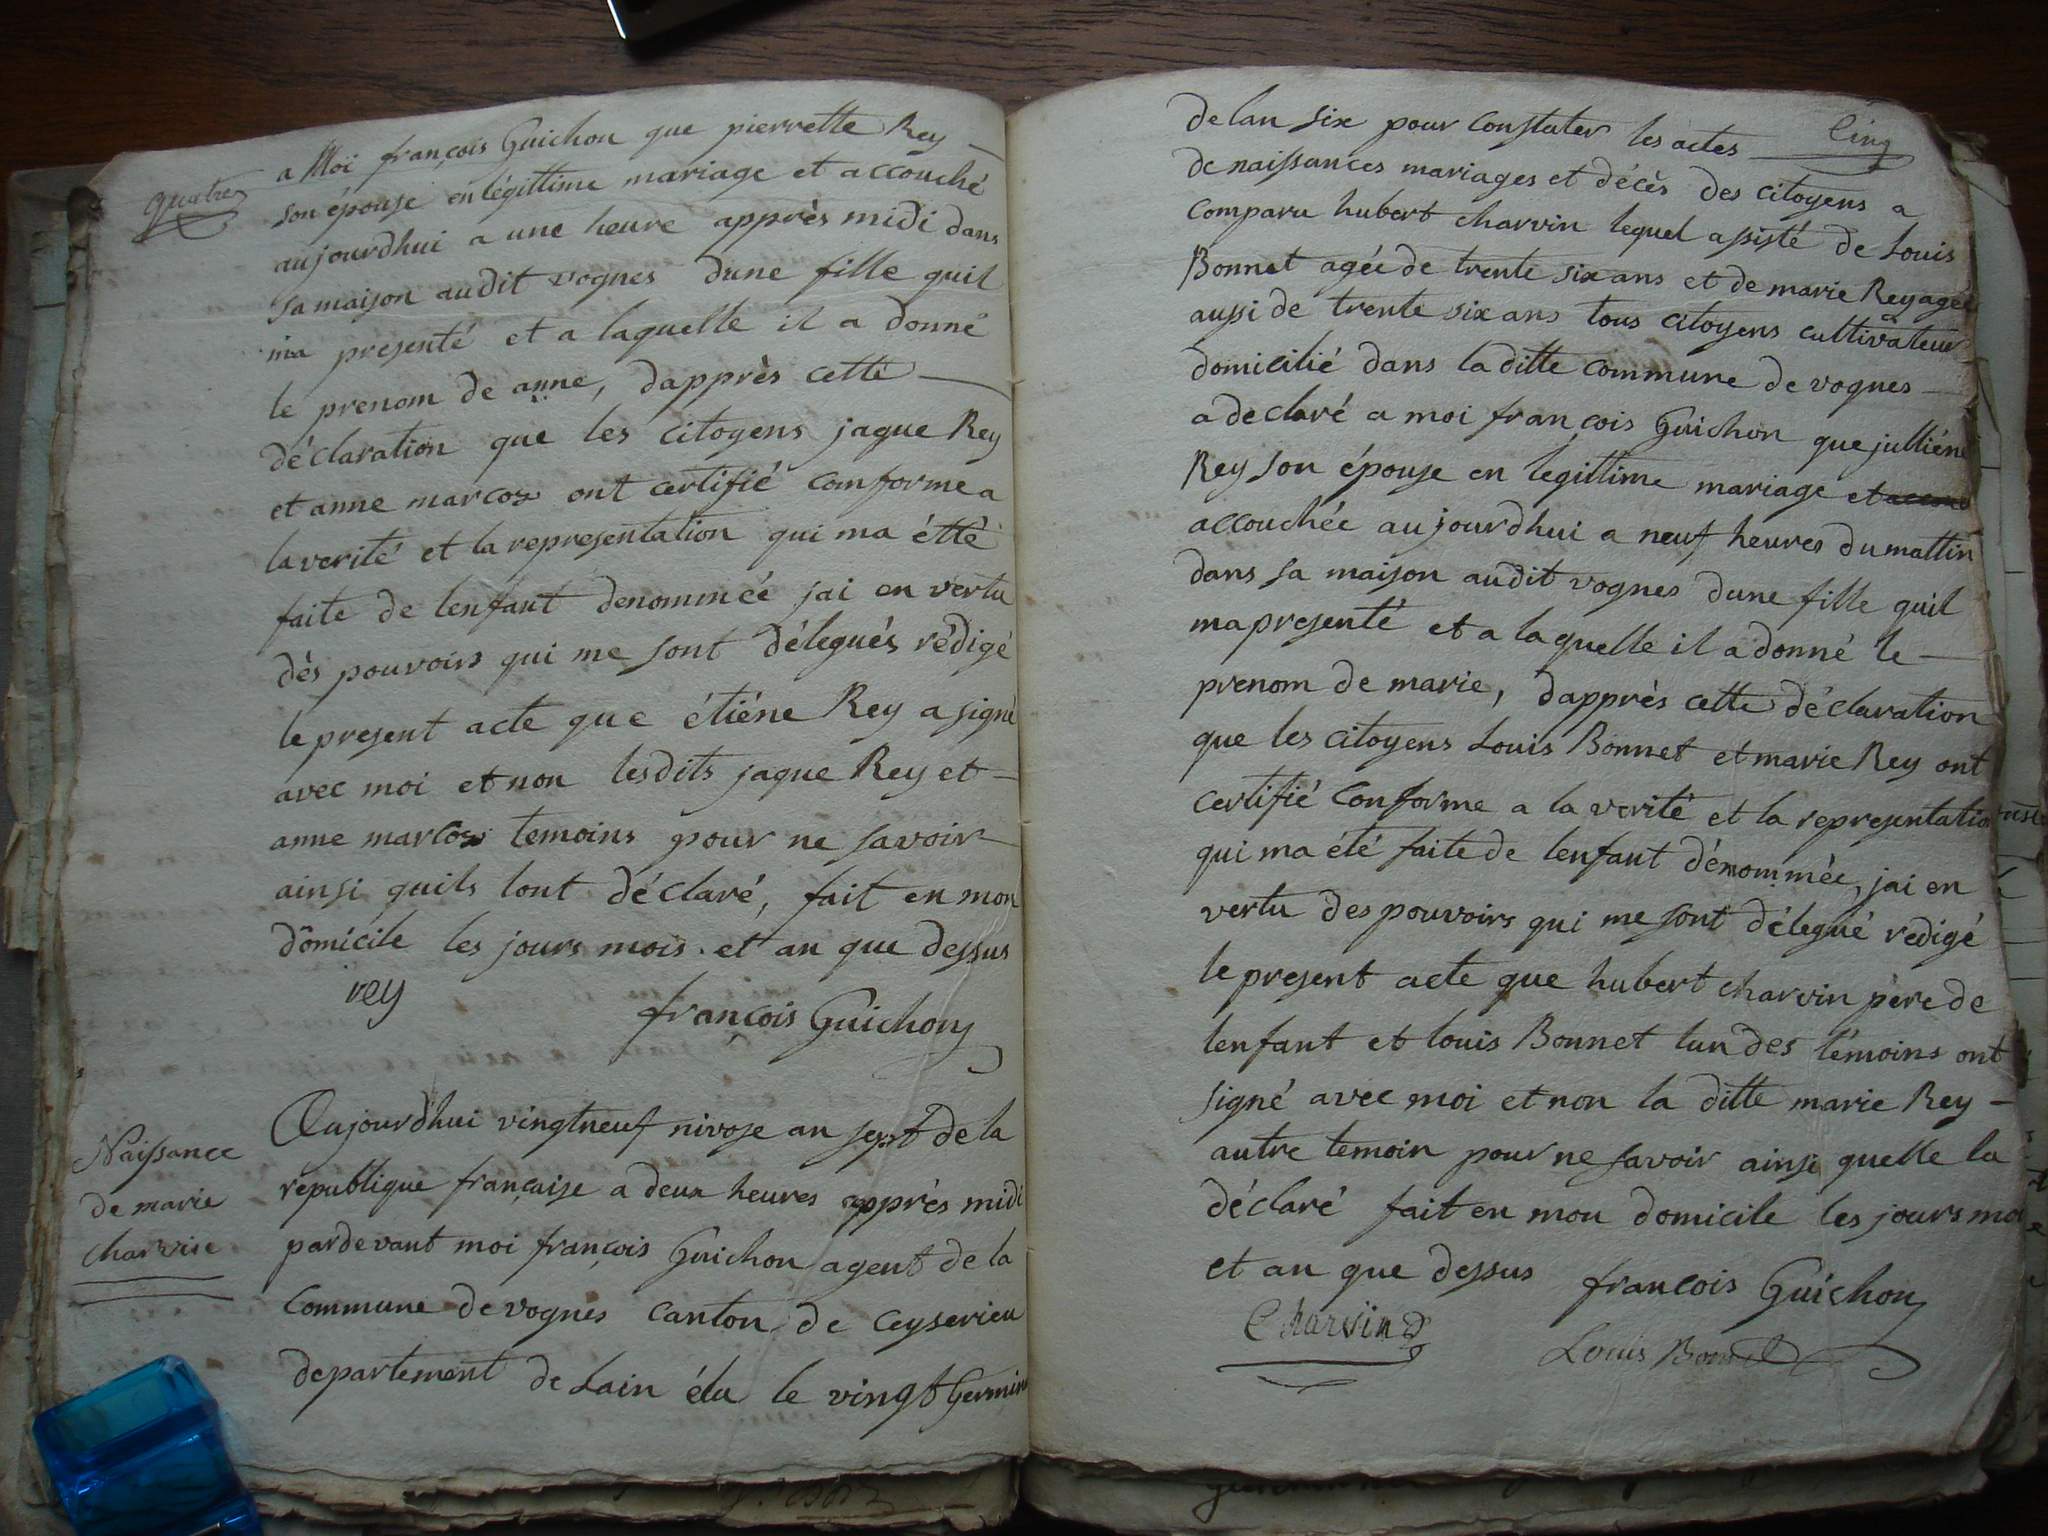 quatre
a Moi françois Guichon que pierrette Rey
son épouse en légittime mariage et accouché
aujourdhui a une heure apprès midi dans
sa maison audit vognes dune fille quil
ma presenté et a laquelle il a donné
le prenom de anne, dapprès cette
déclaration que les citoyens jaque Rey
et anne marcoz ont certifié conforme a
la verité et la representation qui ma étté
faite de lenfant denommée jai en vertu
dès pouvoirs qui me sont délegués rédigé
le present acte que étiéne Rey a signé
avec moi et non lesdits jaque Rey et
anne marcoz temoins pour ne savoir
ainsi quils lont déclaré, fait en mon
domicile les jours mois et an que dessus
rey
françois Guichon
Naissance
de marie
charvin
Aujourdhui vingtneuf nivose an sept de la
republique française a deux heures apprès midi
pardevant moi françois Guichon agent de la
commune de vognes canton de ceyserieu
departement de Lain élu le vingt Germinal
cinq
de lan six pour constater les actes
de naissances mariages et décès des citoyens a
comparu hubert charvin lequel assisté de Louis
Bonnet agée de trente six ans et de marie Rey agée
aussi de trente six ans tous citoyens cultivateur
domicilié dans la ditte commune de vognes
a declaré a moi françois Guichon que julliéne
Rey son épouse en legittime mariage et accou
accouchée aujourdhui a neuf heures du mattin
dans sa maison audit vognes dune fille quil
ma presenté et a laquelle il a donné le
prenom de marie, dapprès cette déclaration
que les citoyens Louis Bonnet et marie Rey ont
certifié conforme a la verité et la representation
qui ma été faite de lenfant dénommée, jai en
vertu des pouvoirs qui me sont délegué redigé
le present acte que hubert charvin père de
lenfant et louis Bonnet lun des témoins ont
signé avec moi et non la ditte marie Rey
autre temoin pour ne savoir ainsi quelle la
déclaré fait en mon domicile les jours moi
et an que dessus françois Guichon
Charvin
Louis Bonnet